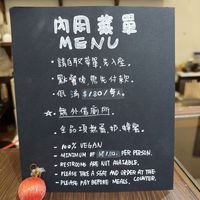 內用菜單
MENU
・請自取菜單,先入座。
・點餐後需先付款
・低消$180/每人。
☆ 無外借廁所。
・全品項純素,奶.蜂蜜。
- 100% VEGAN
- MINIMUM OF $180 PER PERSON.
- RESTROOMS ARE NOT AVAILABLE.
- PLEASE TAKE A SEAT AND ORDER AT THE
- PLEASE PAY BEFORE MEALS. COUNTER.